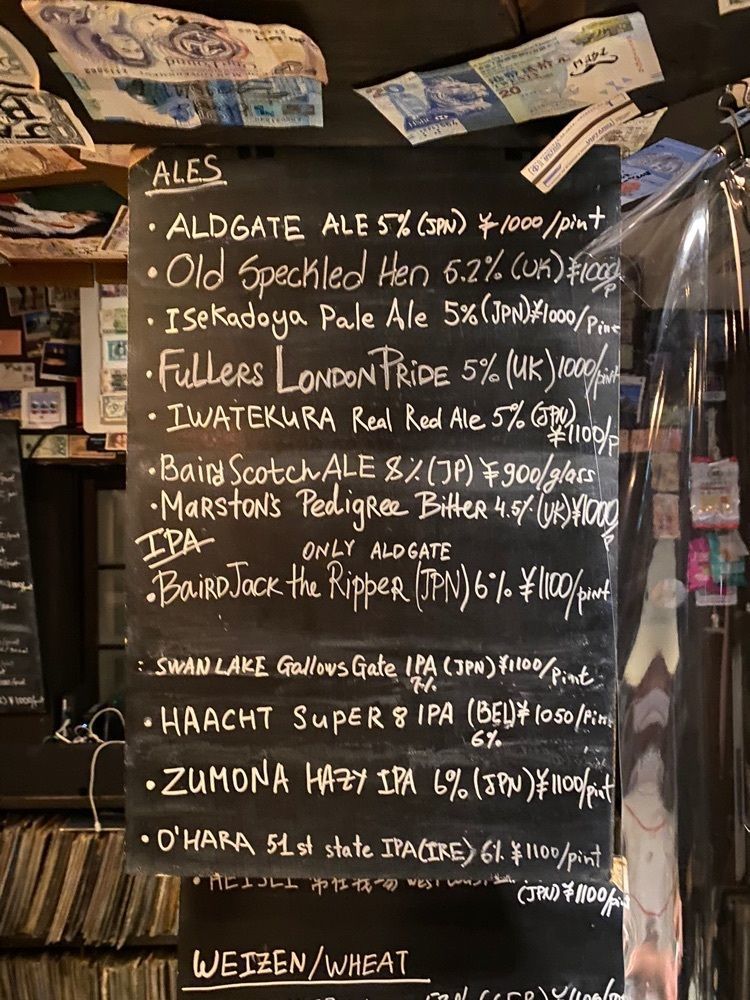 ALES
• ALDGATE ALE 5% (JPN) ¥1000/pint
• Old Speckled Hen 5.2% (UK) ¥1000/P
• Isekadoya Pale Ale 5% (JPN) ¥1000/Pint
• FULLERS LONDON PRIDE 5% (UK) 1000/pint
• IWATEKURA Real Red Ale 5% (JPN)
¥1100/P
• Baird Scotch ALE 8% (JP) ¥900/glass
• MARSTON'S Pedigree Bitter 4.5% (UK) ¥1000/P
IPA
ONLY ALDGATE
• BAIRD Jack the Ripper (JPN) 6% ¥1100/pint
: SWAN LAKE Gallows Gate IPA (JPN) ¥1100/Pint
7%
• HAACHT SUPER 8 IPA (BEL) ¥1050/Pin
6%
• ZUMONA HAZY IPA 6% (JPN) ¥1100/pint
• O'HARA 51st state IPA (IRE) 6% ¥1100/pint
(JPN) ¥1100/pin
WEIZEN/WHEAT
20